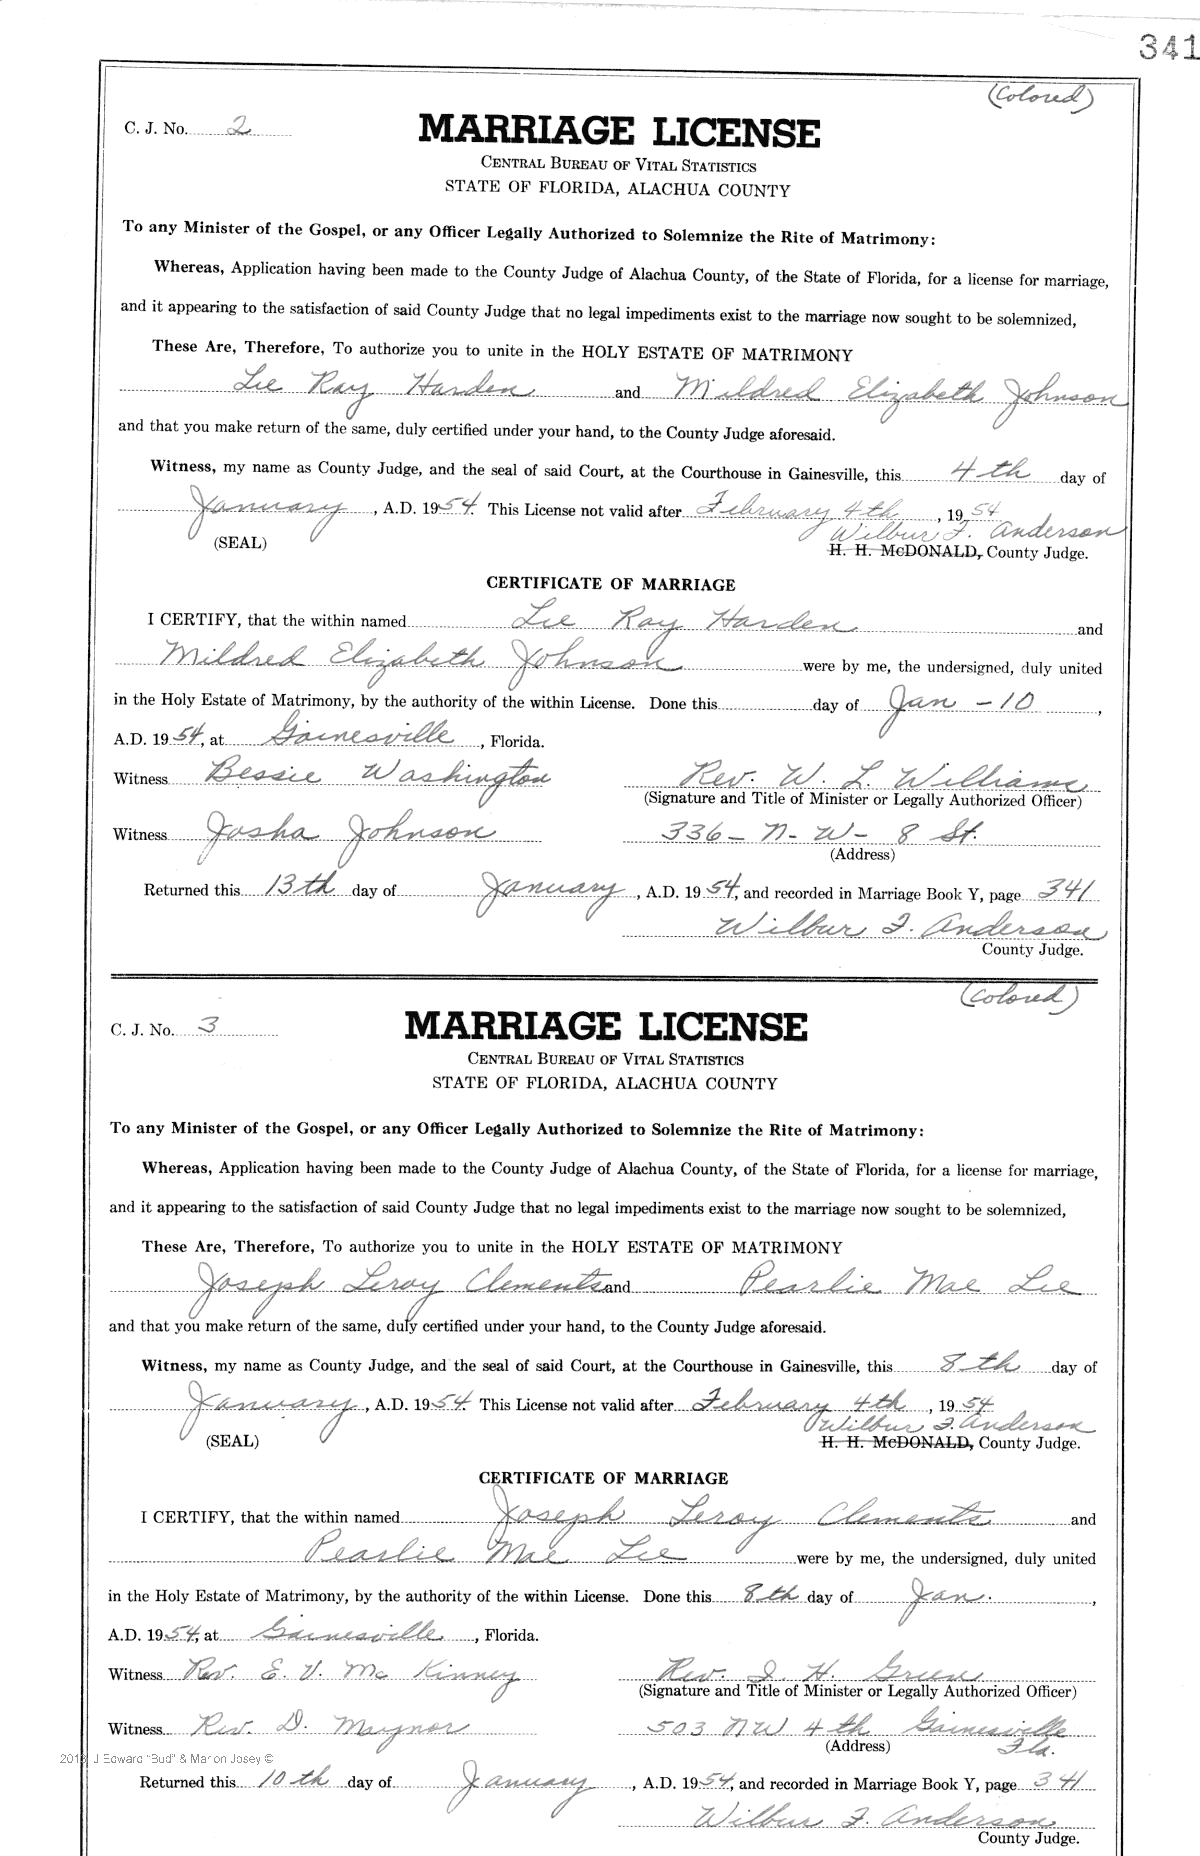 341
(Colored)
C. J. No. 2
MARRIAGE LICENSE
CENTRAL BUREAU OF VITAL STATISTICS
STATE OF FLORIDA, ALACHUA COUNTY
To any Minister of the Gospel, or any Officer Legally Authorized to Solemnize the Rite of Matrimony:
Whereas, Application having been made to the County Judge of Alachua County, of the State of Florida, for a license for marriage,
and it appearing to the satisfaction of said County Judge that no legal impediments exist to the marriage now sought to be solemnized,
These Are, Therefore, To authorize you to unite in the HOLY ESTATE OF MATRIMONY
Lee Ray Harden and Mildred Elizabeth Johnson
and that you make return of the same, duly certified under your hand, to the County Judge aforesaid.
Witness, my name as County Judge, and the seal of said Court, at the Courthouse in Gainesville, this 4th day of
January, A.D. 1954. This License not valid after February 4th, 1954
Wilbur F. Anderson
(SEAL) H. H. McDONALD, County Judge.
CERTIFICATE OF MARRIAGE
I CERTIFY, that the within named Lee Ray Harden and
Mildred Elizabeth Johnson were by me, the undersigned, duly united
in the Holy Estate of Matrimony, by the authority of the within License. Done this day of Jan - 10,
A.D. 1954, at Gainesville, Florida.
Witness Bessie Washington Rev. W. L. Williams
(Signature and Title of Minister or Legally Authorized Officer)
Witness Josha Johnson 336 - N - W - 8 St.
(Address)
Returned this 13th day of January, A.D. 1954, and recorded in Marriage Book Y, page 341
Wilbur F. Anderson
County Judge.
(Colored)
C. J. No. 3
MARRIAGE LICENSE
CENTRAL BUREAU OF VITAL STATISTICS
STATE OF FLORIDA, ALACHUA COUNTY
To any Minister of the Gospel, or any Officer Legally Authorized to Solemnize the Rite of Matrimony:
Whereas, Application having been made to the County Judge of Alachua County, of the State of Florida, for a license for marriage,
and it appearing to the satisfaction of said County Judge that no legal impediments exist to the marriage now sought to be solemnized,
These Are, Therefore, To authorize you to unite in the HOLY ESTATE OF MATRIMONY
Joseph Leroy Clements and Pearlie Mae Lee
and that you make return of the same, duly certified under your hand, to the County Judge aforesaid.
Witness, my name as County Judge, and the seal of said Court, at the Courthouse in Gainesville, this 8th day of
January, A.D. 1954. This License not valid after February 4th, 1954
Wilbur F. Anderson
(SEAL) H. H. McDONALD, County Judge.
CERTIFICATE OF MARRIAGE
I CERTIFY, that the within named Joseph Leroy Clements and
Pearlie Mae Lee were by me, the undersigned, duly united
in the Holy Estate of Matrimony, by the authority of the within License. Done this 8th day of Jan.,
A.D. 1954, at Gainesville, Florida.
Witness Rev. E. V. Mc Kinney Rev. I. H. Green
(Signature and Title of Minister or Legally Authorized Officer)
Witness Rev. D. Maynor 503 NW 4th Gainesville
(Address) Fla.
J Edward "Bud" & Marion Josey ©
Returned this 10th day of January, A.D. 1954, and recorded in Marriage Book Y, page 341
Wilbur F. Anderson
County Judge.